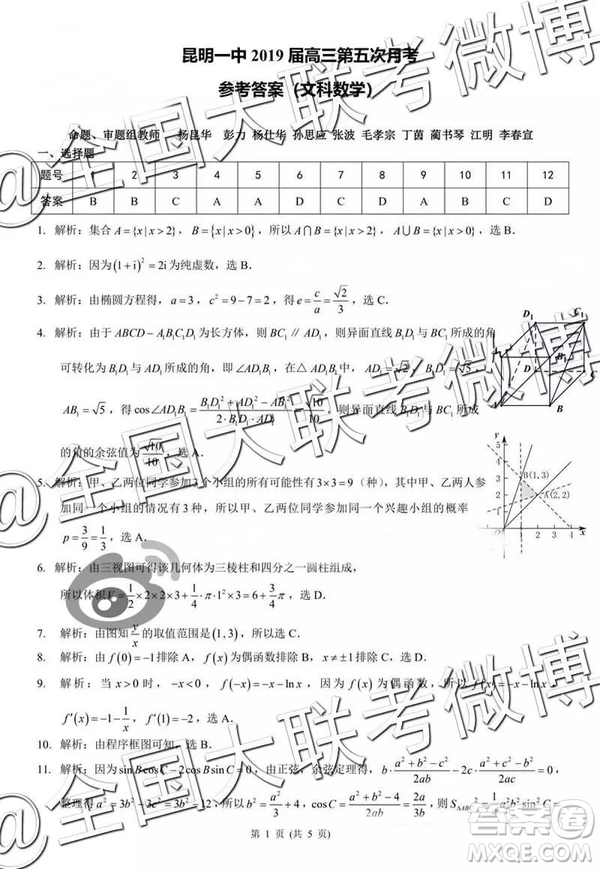 昆明一中 2019 届高三第五次月考
参考答案（文科数学）
命题、审题组教师 杨昆华 彭力 杨仕华 孙思应 张波 毛孝宗 丁茵 蔺书琴 江明 李春宣
一、选择题
题号 1 2 3 4 5 6 7 8 9 10 11 12
答案 B B C A A D C D C D
1. 解析：集合 A={x|x>2}，B={x|x>0}，所以 A∩B={x|x>2}，A∪B={x|x>0}，选 B.
2. 解析：因为(1+i)²=2i 为纯虚数，选 B.
3. 解析：由椭圆方程得，a=3，c²=9-7=2，得 e=c/a=√2/3，选 C.
4. 解析：由于 ABCD-A₁B₁C₁D₁ 为长方体，则 BC₁∥AD₁，则异面直线 B₁D₁ 与 BC₁ 的角
可转化为 B₁D₁ 与 AD₁ 所成的角，即∠AD₁B₁，在△AD₁B₁ 中，AD₁=√2，B₁D₁=√5，
AB₁=√5，得 cos∠AD₁B₁=(B₁D₁²+AD₁²-AB₁²)/(2·B₁D₁·AD₁)=√10/10，则异面直线所成
的角的余弦值为 √10/10，选 A.
D₁ C₁ D B
5. 解析：甲、乙两位同学参加 3 个小组的所有可能性有 3×3=9（种），其中甲、乙两人参加
同一个小组的情况有 3（种），所以甲、乙两位同学参加同一个兴趣小组的概率
p=3/9=1/3，选 A.
B(1,3) A(2,2) 1 2 3 4 x
6. 解析：由三视图可得该几何体为三棱柱和四分之一圆柱组成，
所以体积V=1/2×2×2×3+1/4·π·1²×3=6+3/4π，选 D.
7. 解析：由图知 y/x 的取值范围是(1,3)，所以选 C.
8. 解析：由 f(0)=-1 排除 A，f(x) 为偶函数排除 B，x≠±1 排除 C，选 D.
9. 解析：当 x>0 时，-x<0，f(-x)=-x-ln x，因为 f(x) 为偶函数，所以 f(x)=-x-ln x，
f′(x)=-1-1/x，f′(1)=-2，选 C.
10. 解析：由程序框图可知，选 D.
11. 解析：因为 sinBcosC-2cosBsinC=0，由正弦、余弦定理得，b·(a²+b²-c²)/2ab-2c·(a²+c²-b²)/2ac=0，
整理得 a²=3b²-3c²，所以 b²=a²/3+4，cosC=(a²+b²-4)/2ab=2a/3b，则 S△ABC²=1/4a²b²sin²C=
第 1 页 (共 5 页)
@全国大联考微博
@全国大联考微博
@全国大联考微博
答案卷
MXQE.COM